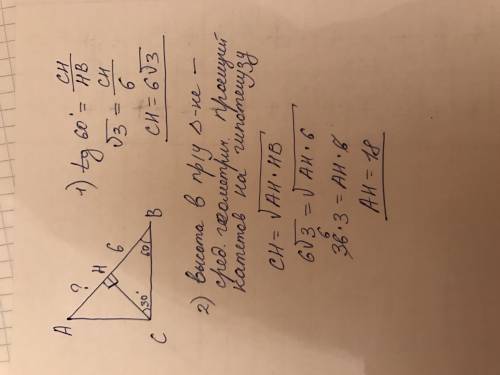 A
?
H
6
B
60°
30°
C
1) tg 60° = CH/HB
√3 = CH/6
CH = 6√3
2) высота в пр/у Δ-не –
сред. геометрич. проекций
катетов на гипотенузу
CH = √AH · HB
6√3 = √AH · 6
36 · 3 = AH · 6
6
AH = 18